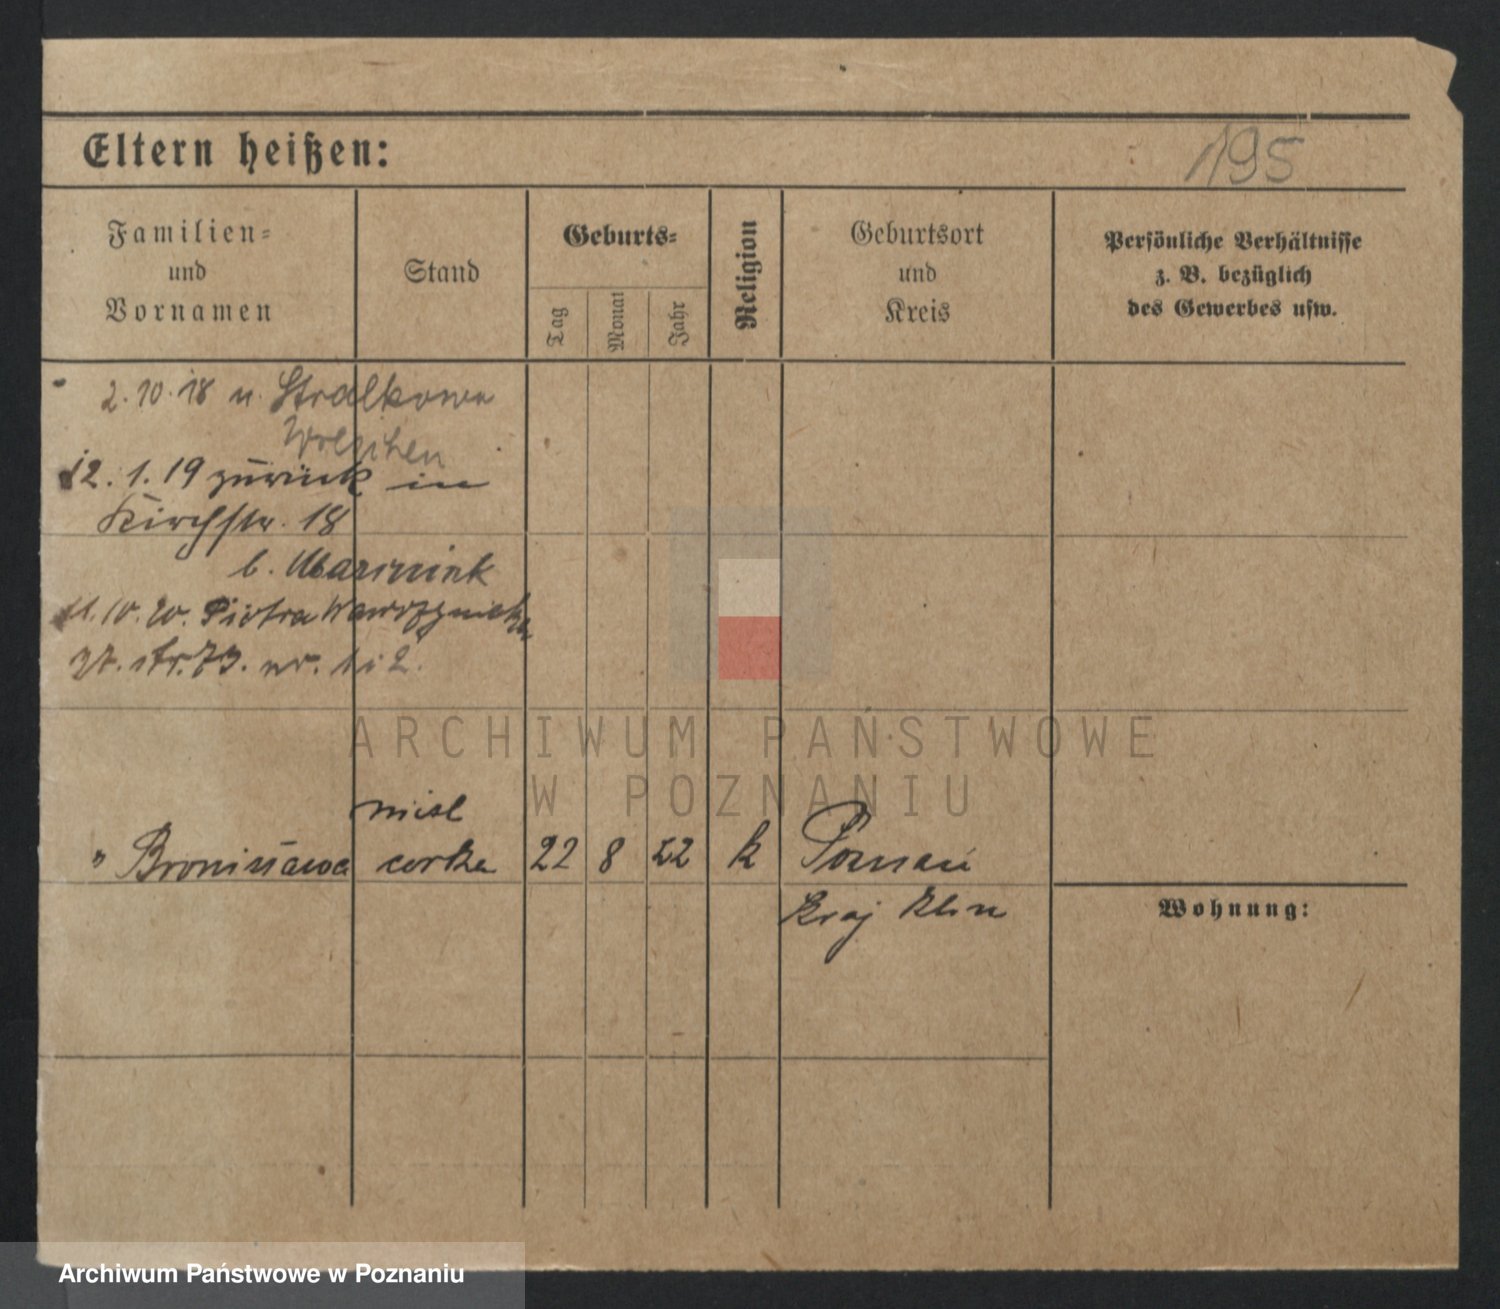 Eltern heißen:
195
Familien-
und
Vornamen
Stand
Geburts-
Tag
Monat
Jahr
Religion
Geburtsort
und
Kreis
Persönliche Verhältnisse
z. B. bezüglich
des Gewerbes usw.
2. 10. 18 n. Stralkowo
12. 1. 19 zurück in
Kirchstr. 18
b.
11. 10. 20. Piotra Wawrzyniaka
27. str. 73. nr.
ARCHIWUM PAŃSTWOWE
W POZNANIU
" Bronisława corka 22 8 22 k Poznań
Wohnung:
Archiwum Państwowe w Poznaniu